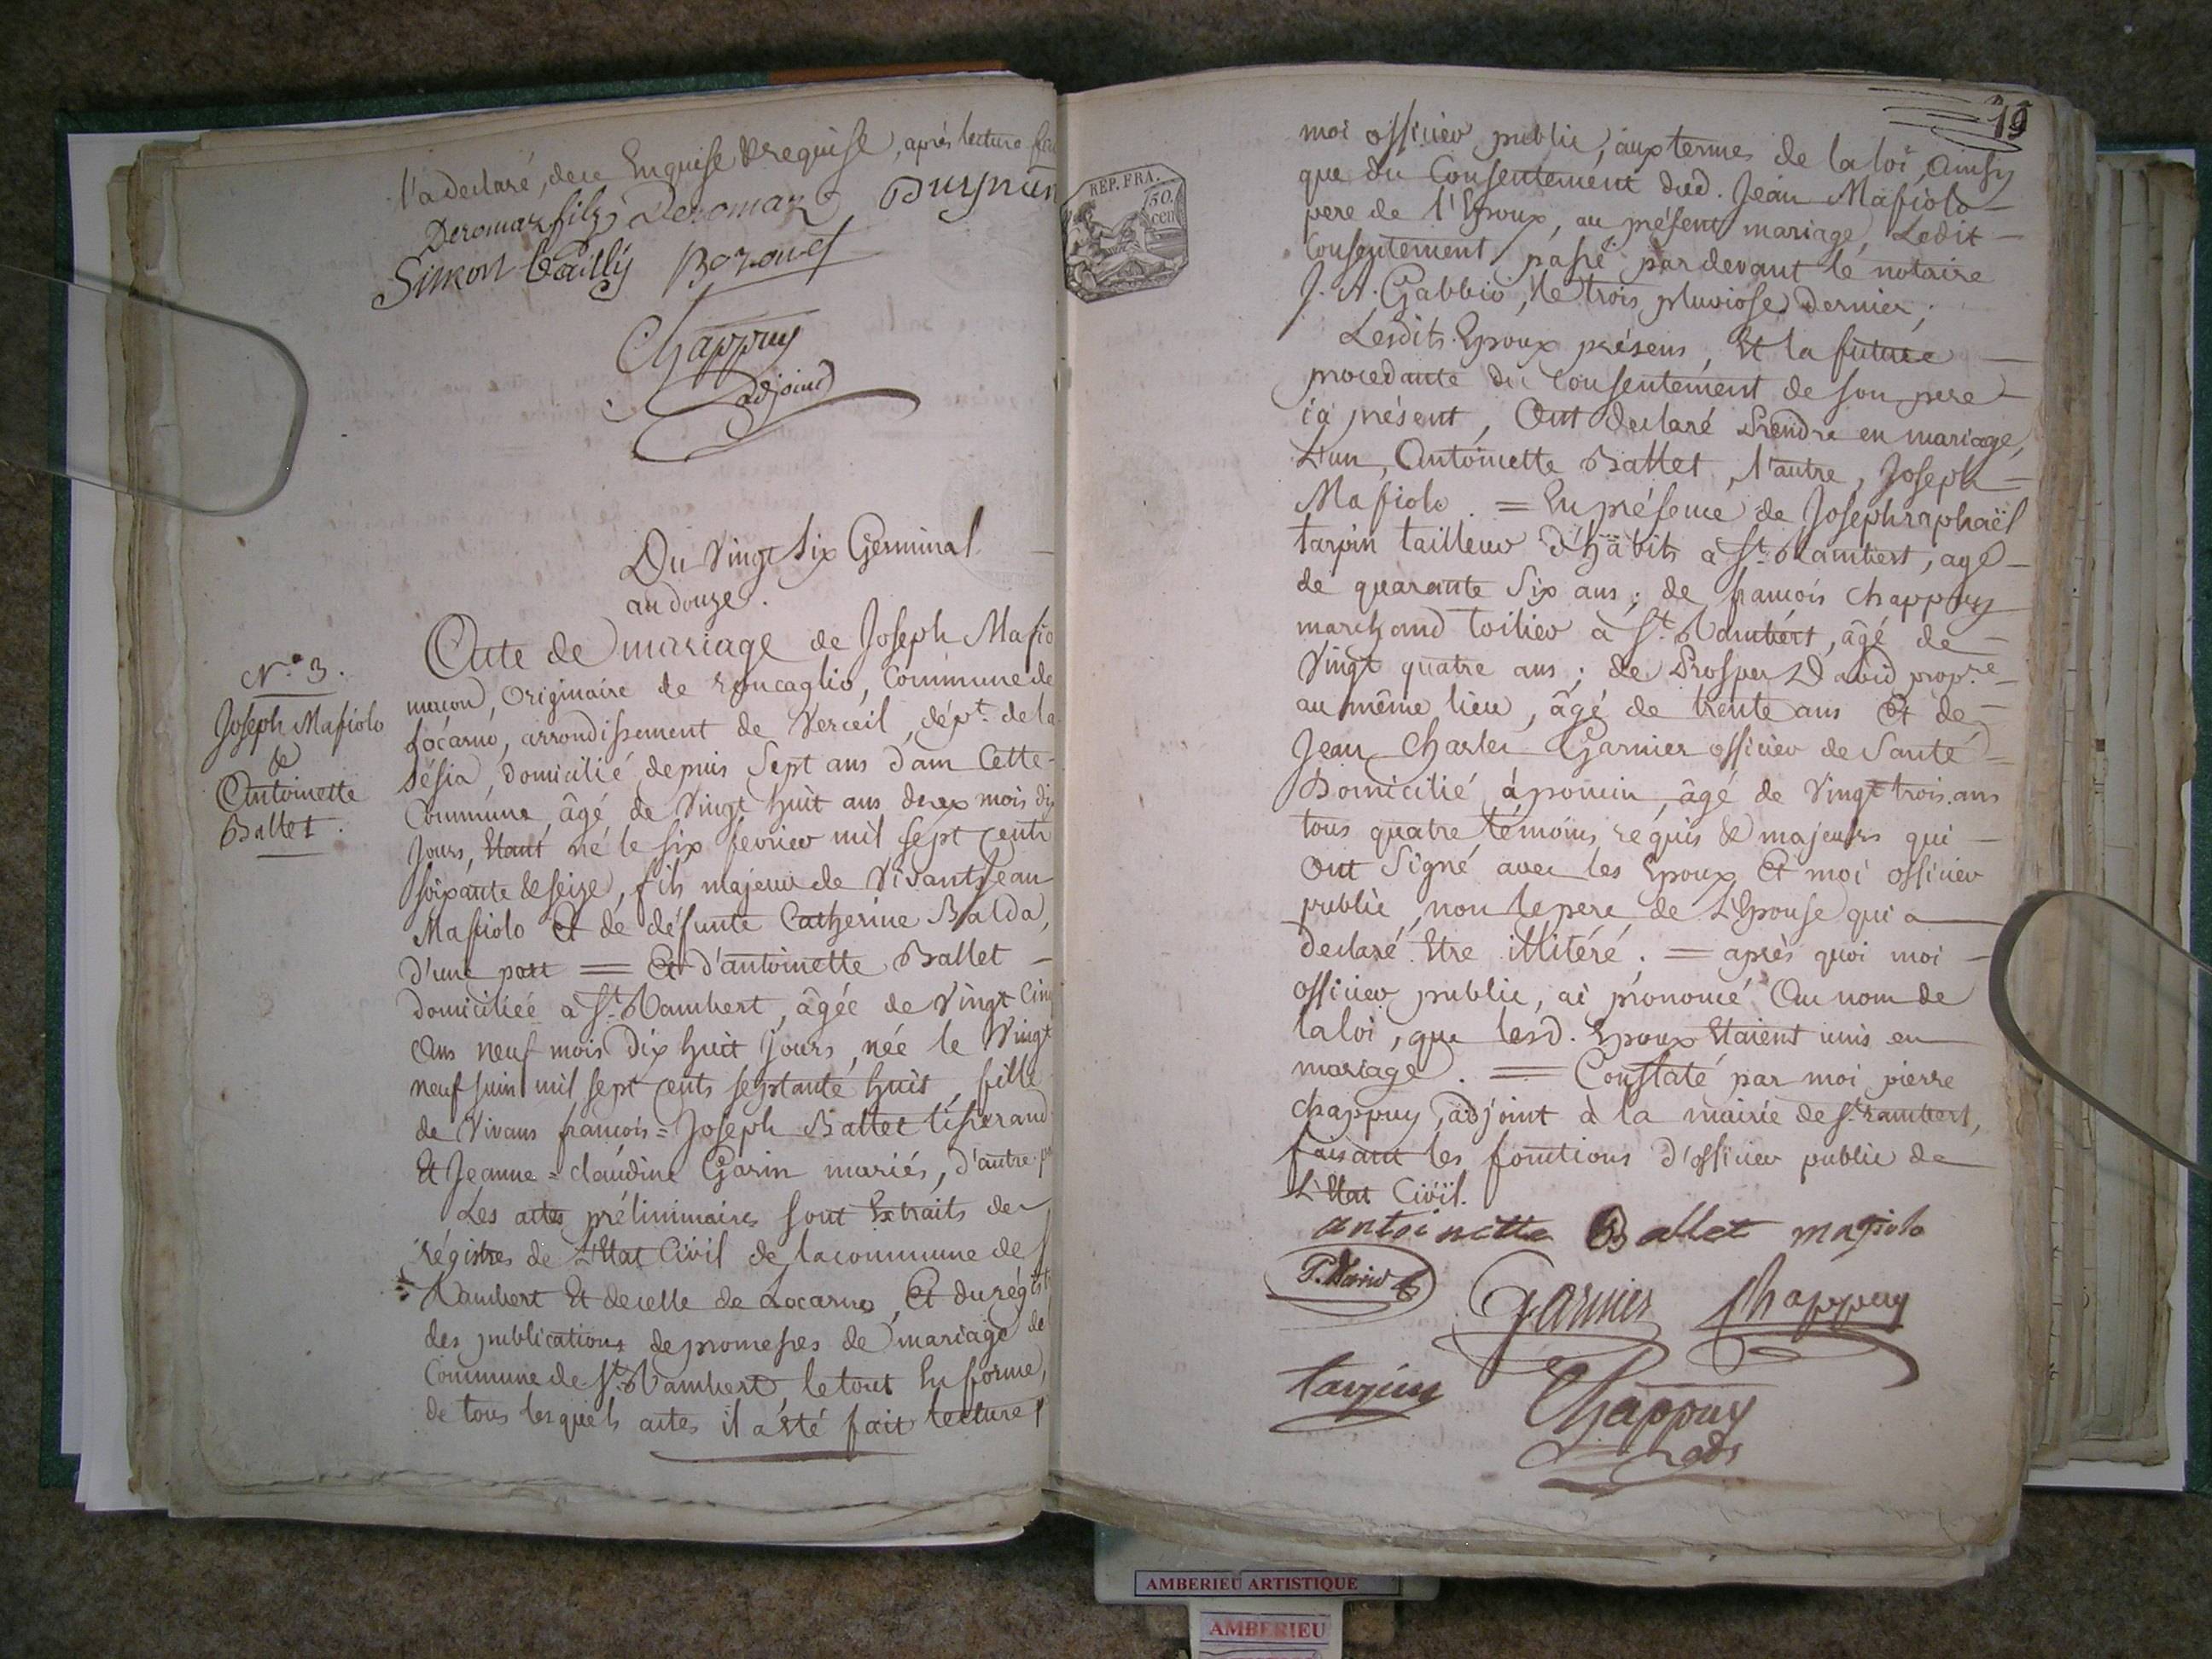 l'a declaré, de ce Enquise & requise, après lecture fa
Deromaz fils Deromaz
Simon Bailly
Chappuy
adjoint
Du Vingt six Germinal
an douze.
N.º 3.
Joseph Mafiolo
&
Antoinette
Ballet.
Acte de mariage de Joseph Mafio
macon, originaire de roncaglio, Commune de
Locarno, arrondissement de Verceil, dép.t de la
Sésia, domicilié depuis Sept ans dans Cette
Commune, âgé de Vingt huit ans deux mois dix
jours, Etant né le six fevrier mil sept cents
soixante & seize, fils majeur de Vivant Jean
Mafiolo Et de défunte Catherine Balda,
d'une part = Et d'antoinette Ballet
domiciliée à St. Rambert, âgée de Vingt Cinq
Ans neuf mois Dix huit jours, née le Vingt
neuf juin mil sept cents septante huit, fille
de Vivans francois = Joseph Ballet tisserand
Et Jeanne = claudine Garin mariés, d'autre p
Les actes préliminaires sont Extraits des
régistres de L'Etat Civil de la commune de S
Rambert Et de celle de Locarno, Et du régist
des publications de promesses de mariage de
Commune de St. Rambert, le tout En forme,
de tous lesquels actes il a été fait lecture p
19
REP. FRA.
50.
cent
moi officier public, aux termes de la loi, ainsy
que du Consentement dud. Jean Mafiolo
pere de l'Epoux, au présent mariage, Ledit
Consentement passé par devant le notaire
J. A. Gabbio, le trois pluviose dernier;
Lesdits Epoux présens, Et la future
procedante du Consentement de son pere
ici présent, Ont declaré Prendre en mariage,
L'un, Antoinette Ballet, l'autre, Joseph
Mafiolo. = En présence de Joseph raphaël
tarpin tailleur d'habits à St. Rambert, agé
de quarante Six ans; de francois Chappuy
marchand toilier à St. Rambert, âgé de
Vingt quatre ans; de Prosper David prop.re
au même lieu, âgé de trente ans Et de
Jean Charles Garnier officier de Santé
Domicilié à poncin, âgé de Vingt trois ans
tous quatre témoins requis & majeurs qui
Ont Signé avec les Epoux Et moi officier
public, non le pere de L'Epouse qui a
declaré Etre illitéré. = après quoi moi
officier public, ai prononcé Au nom de
la loi, que lesd. Epoux Etaient unis en
mariage. = Constaté par moi pierre
Chappuy, adjoint à la mairie de St. rambert,
faisant les fonctions d'officier public de
L'Etat Civil.
antoinette Ballet mafiolo
P. David
Garnier Chappuy
tarpin
Chappuy
adj
AMBERIEU ARTISTIQUE
AMBERIEU